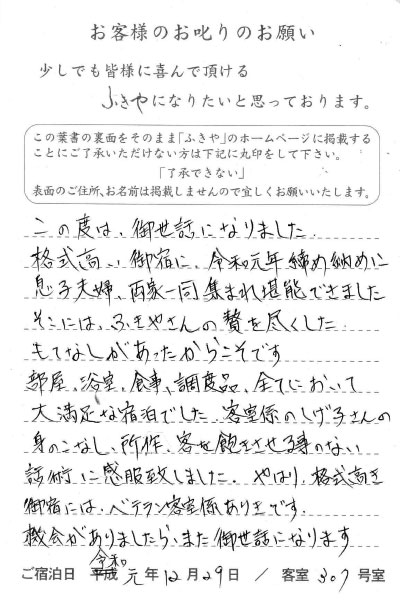 お客様のお叱りのお願い
少しでも皆様に喜んで頂ける
ふきやになりたいと思っております。
この葉書の裏面をそのまま「ふきや」のホームページに掲載する
ことにご了承いただけない方は下記に丸印をして下さい。
「了承できない」
表面のご住所、お名前は掲載しませんので宜しくお願いいたします。
この度は、御世話になりました.
格式高い御宿に、令和元年締め納めに
息子夫婦、両家一同集まれ堪能できました
そこには、ふきやさんの贅を尽くした
もてなしがあったからこそです
部屋、浴室、食事、調度品、全てにおいて
大満足な宿泊でした。客室係のしげ子さんの
身のこなし、所作、客を飽きさせる事のない
話術に感服致しました。やはり、格式高き
御宿には、ベテラン客室係ありきです.
機会がありましたら、また御世話になります
ご宿泊日 平成 令和 元年12月29日 / 客室 307 号室